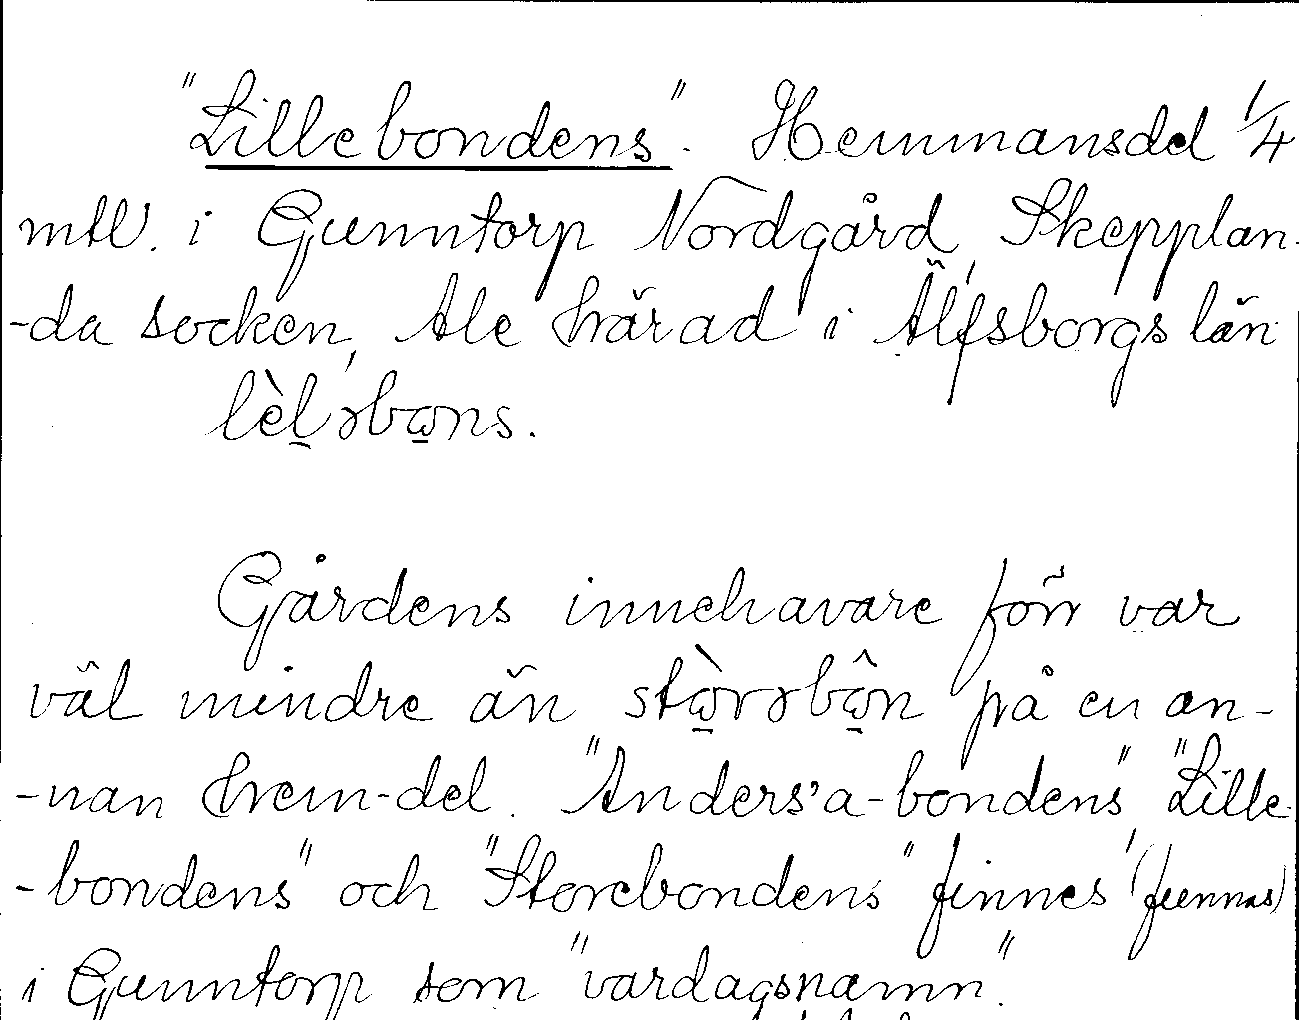 "Lillebondens". Hemmansdel 1/4
mtl. i Gunntorp Nordgård, Skepplan-
-da socken, Ale härad i Älfsborgs län
lèl̠əbω̠ns.
Gårdens innehavare förr var
väl mindre än stὼ̠rəbω̠̂n på en an-
-nan hem-del. "Anders'a-bondens", "Lille-
-bondens" och "Storebondens" finnes (funnas)
i Gunntorp som "vardagsnamn".